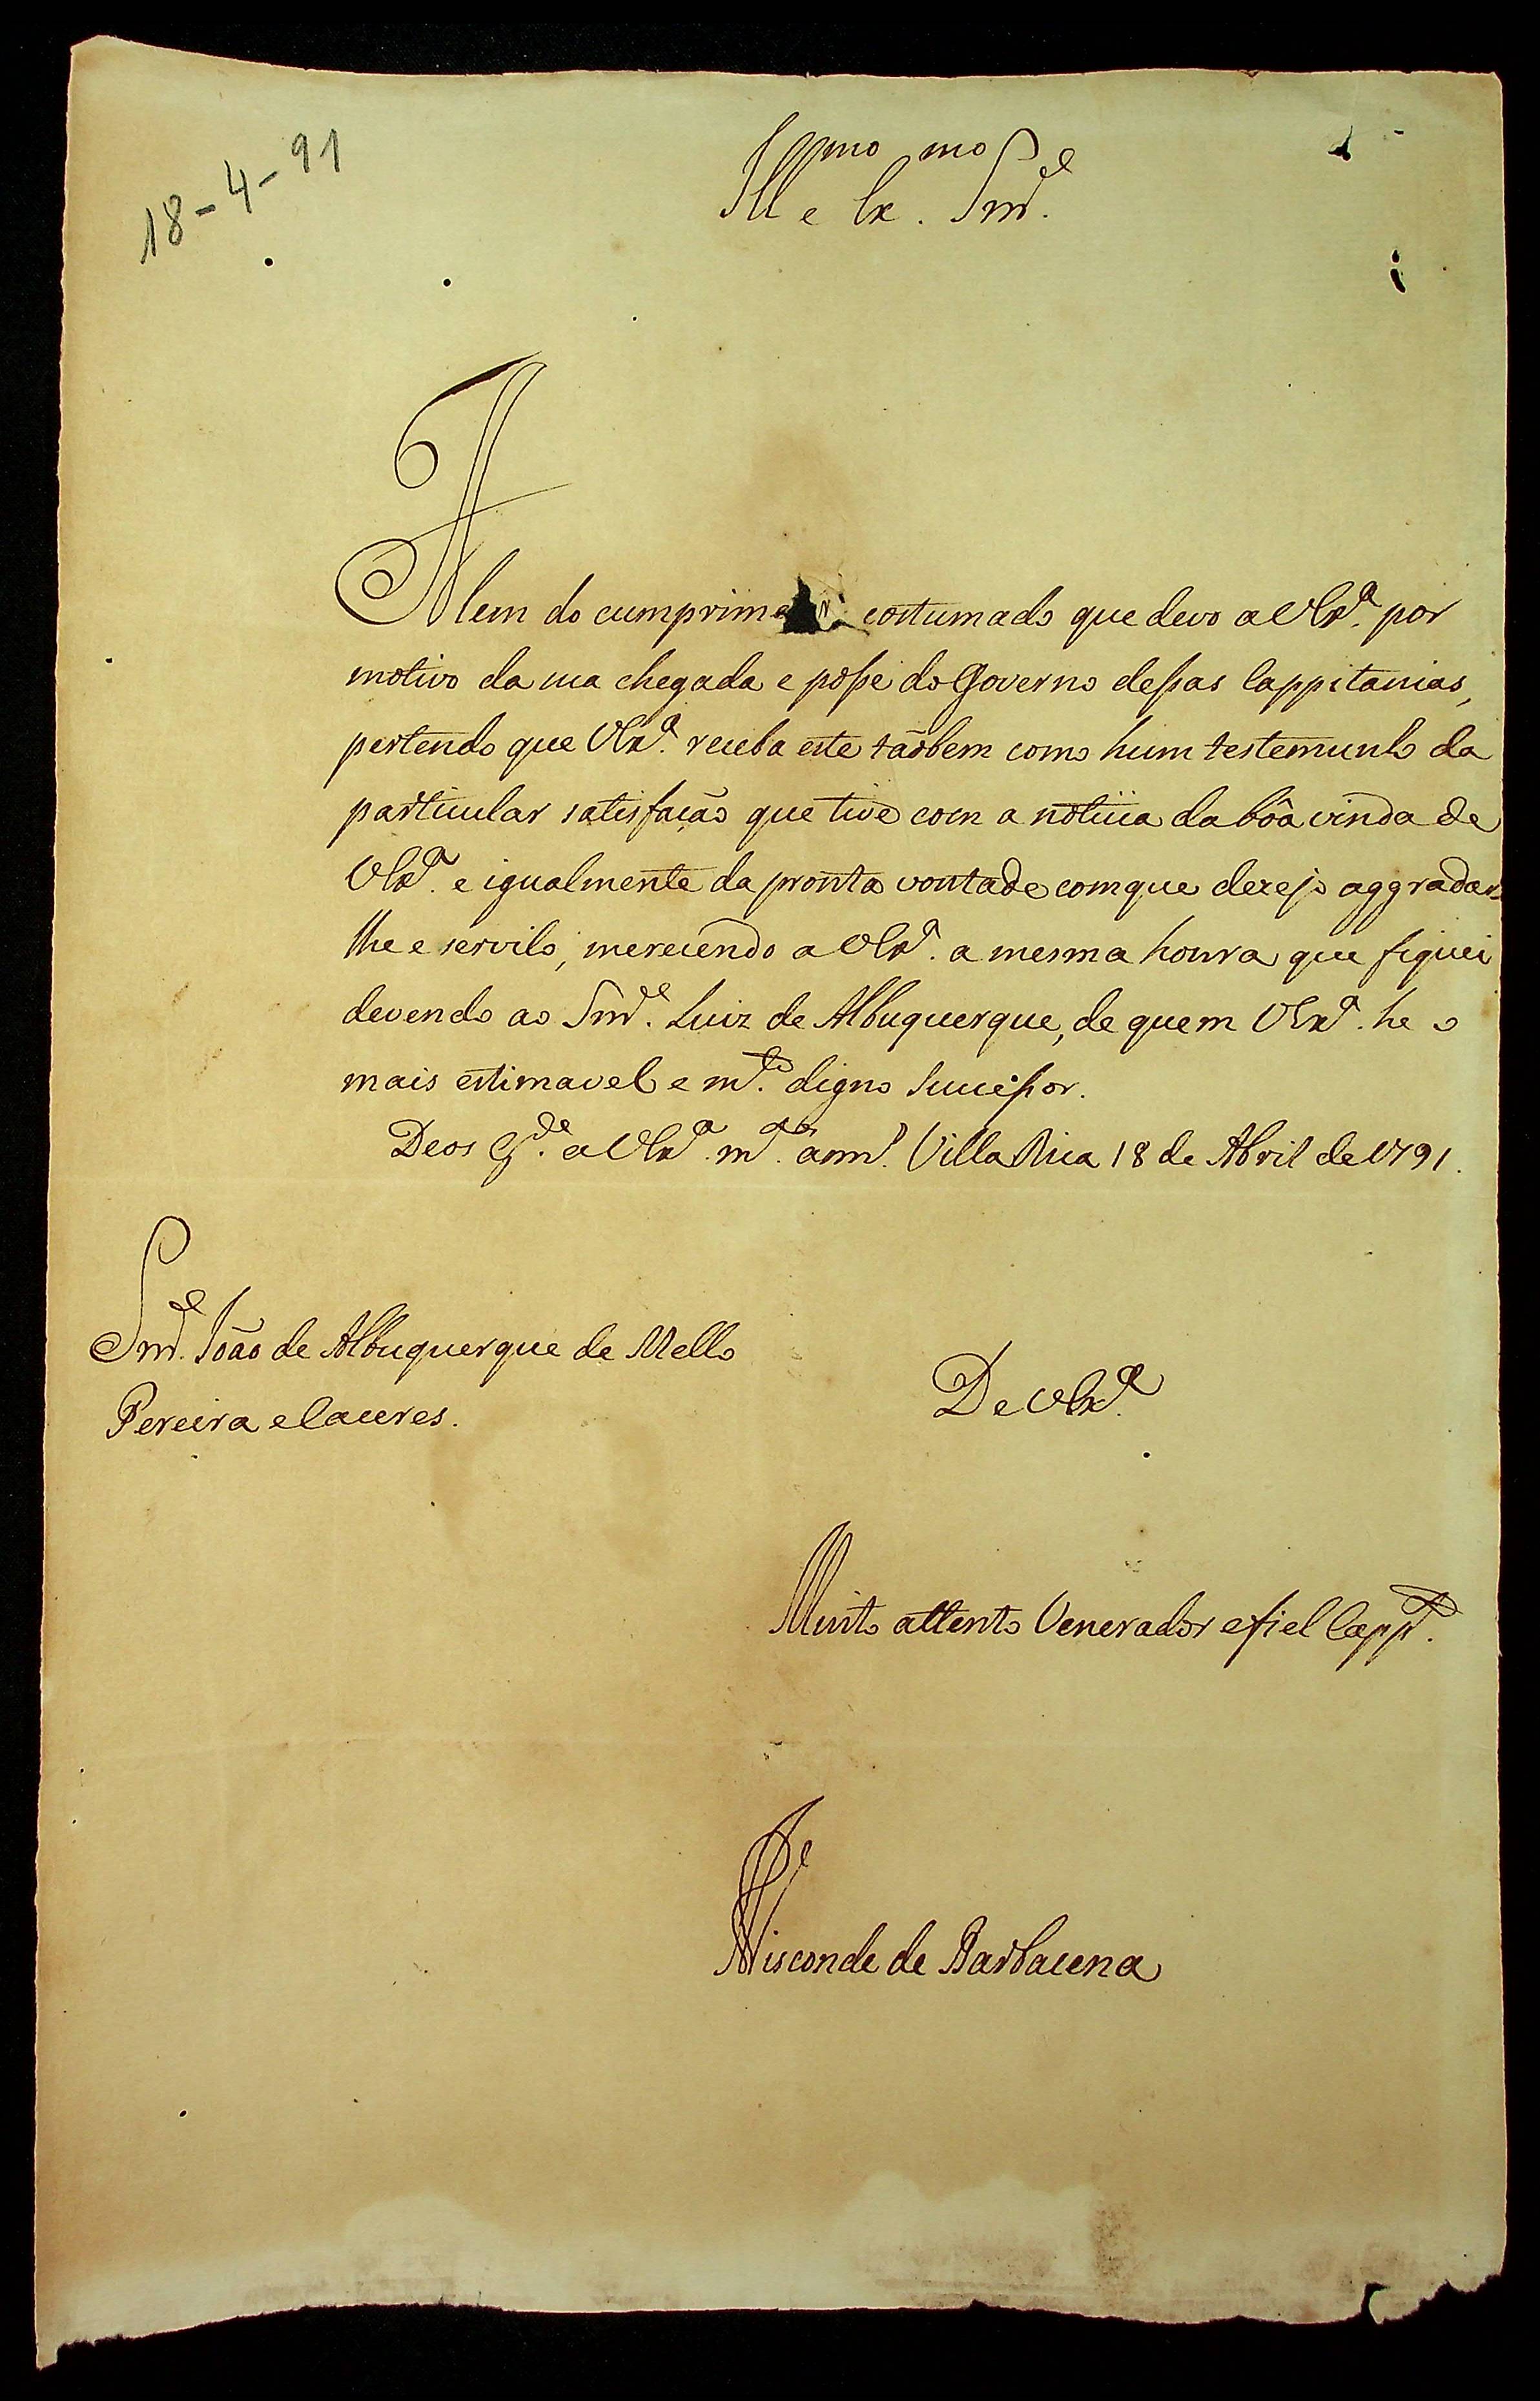 18-4-91
Ill.mo e Ex.mo Snr.
Alem do cumprime costumado que devo a VEx.ª por
motivo da sua chegada e posse do Governo dessas Cappitanias,
pertendo que VEx.ª receba este tãobem como hum testemunho da
particular satisfação que tive com a noticia da bôa vinda de
VEx.ª e igualmente da pronta vontade com que dezejo aggradar-
lhe e servilo, merecendo a VEx.ª a mesma honra que fiquei
devendo ao Snr. Luiz de Albuquerque, de quem VEx.ª he o
mais estimavel e m.to digno Sucessor.
Deos G.de a VEx.ª m.s ann.s Villa Rica 18 de Abril de 1791.
Snr. João de Albuquerque de Mello
Pereira e Caceres.
De VEx.ª
Muito attento Venerador e fiel Capp.
Visconde de Barbacena